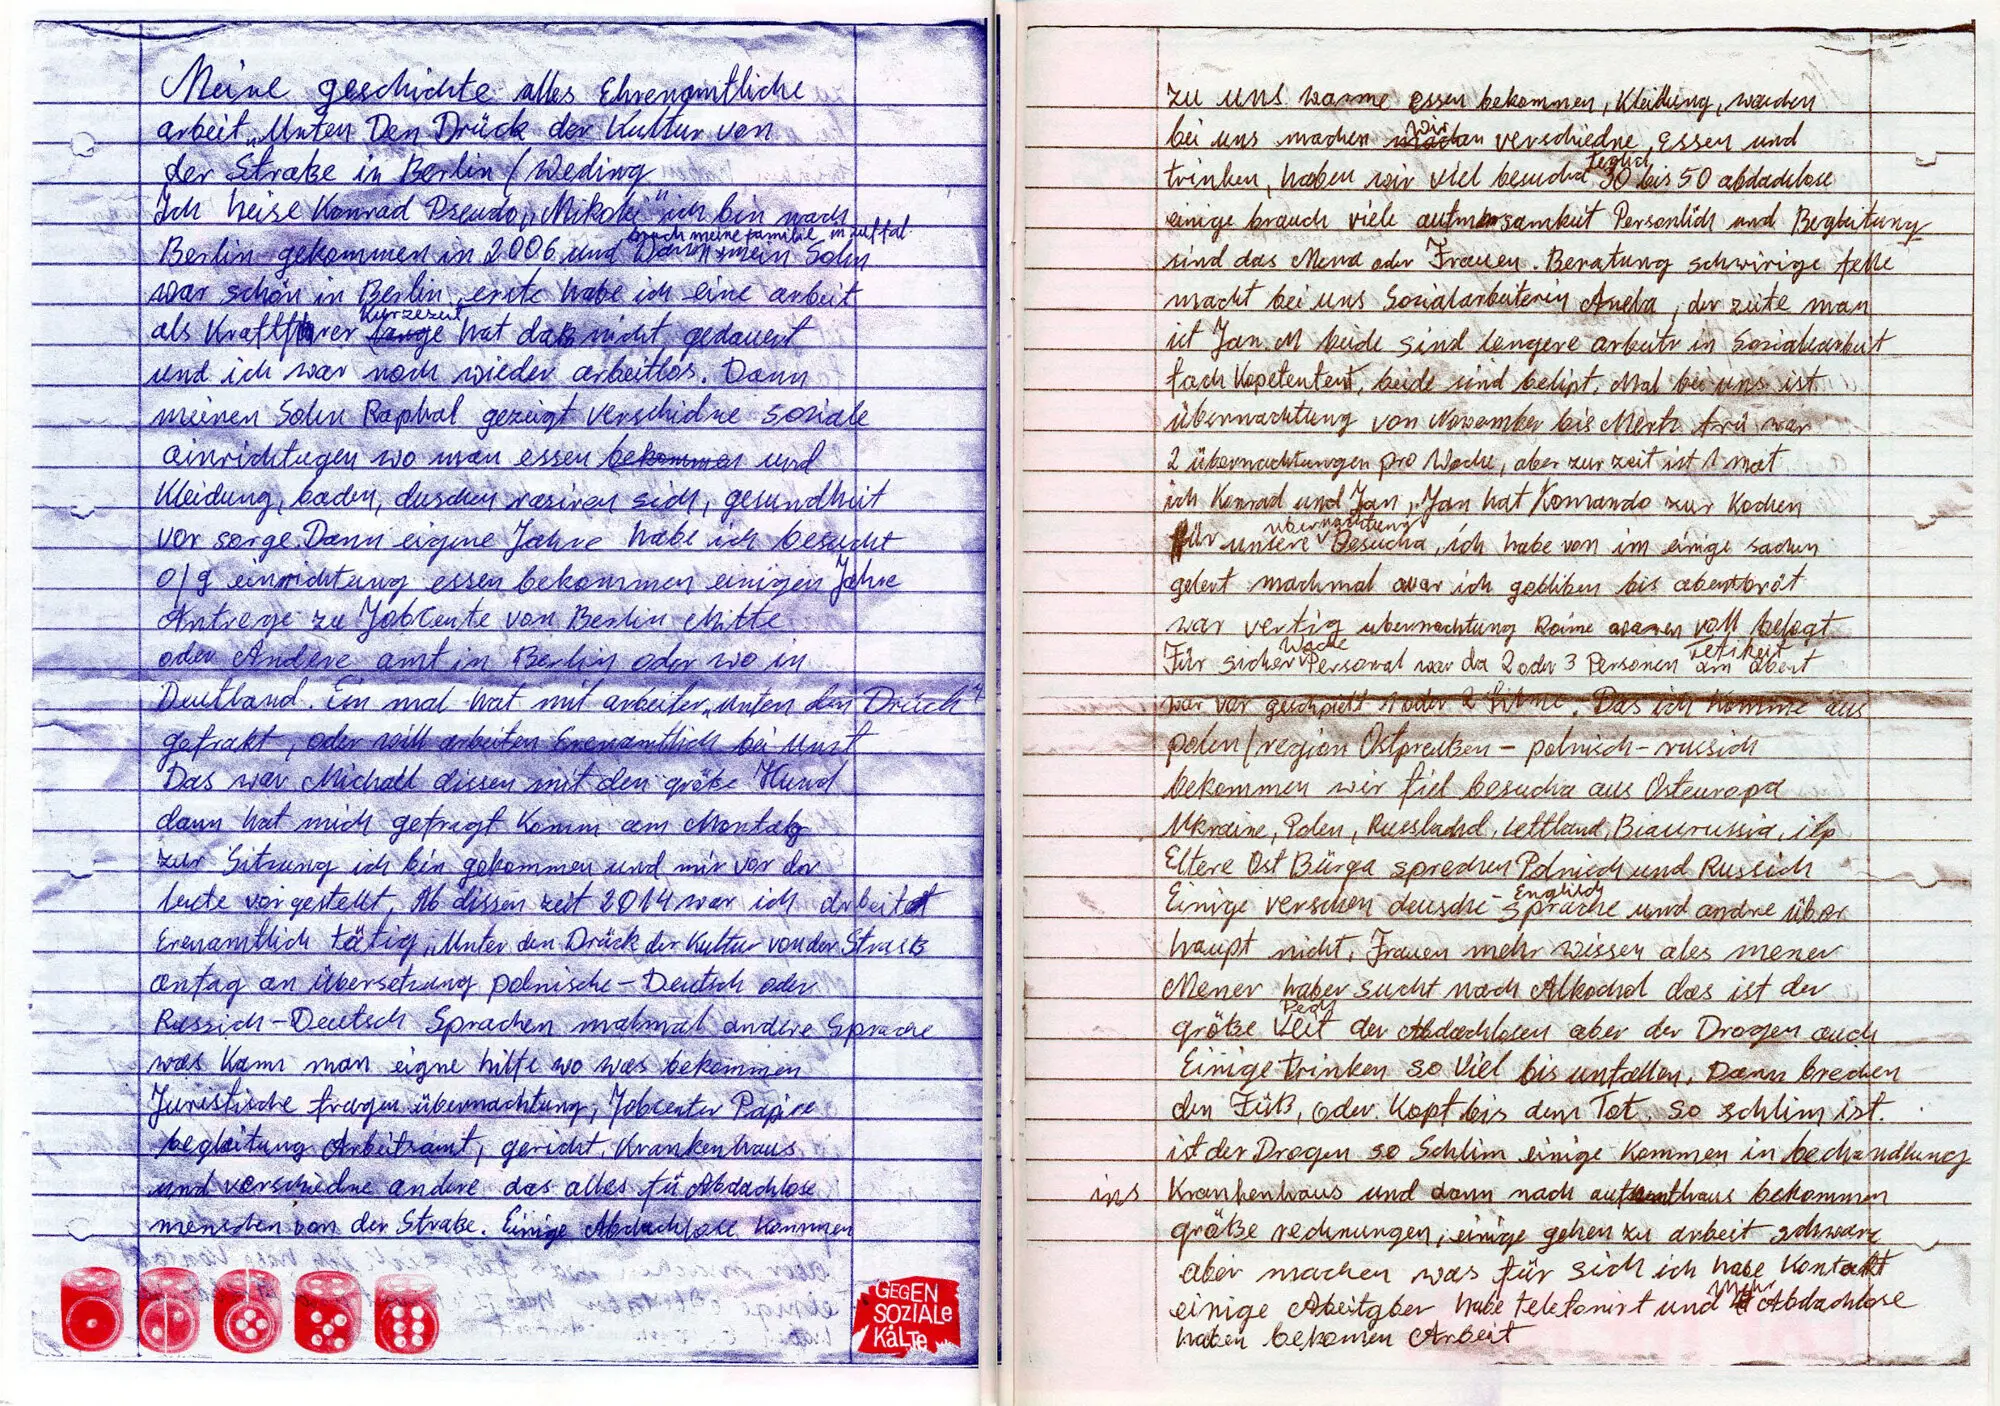 Meine geschichte alles Ehrenamtliche
arbeit „Unten Den Drück der Kultur von
der Straße in Berlin / Weding
Ich heise Konrad Pseudo „Mikoki" ich bin nach
Berlin gekommen in 2006 und mein Sohn
war schön in Berlin, erste habe ich eine arbeit
als Kraftfhrer kurzezeit hat daß nicht gedauert
und ich war noch wieder arbeitlos. Dann
meinen Sohn Raphal gezeigt verschidne soziale
einrichtugen wo man essen bekommen und
Kleidung, baden, duschen rasiren sich, gesundheit
vor sorge. Dann eigene Jahre habe ich besucht
o/g einrichtung essen bekommen einigen Jahre
Antrege zu JobCente von Berlin Mitte
oder Andere amt in Berlin oder wo in
Deutland. Ein mal hat mit arbeiter „unten den Drück"
gefrakt, oder will arbeiten Erenamtlich bei Unst
Das war Michall diesen mit den größe Hund
dann hat mich gefragt Komm am Montag
zur Sitzung ich bin gekommen und mir vor der
leute vorgestellt, Ab dissen zeit 2014 war ich arbeitet
Erenamtlich tätig „Unter den Drück der Kultur von der Strass
antag an übersetzung polnische - Deutsch oder
Russich - Deutsch Sprachen mahmal andere Sprache
was kann man eigne hilfe wo was bekommen
Juristische fragen übernachtung, Jobcenter Papire
begleitung Arbeitsamt, gericht, Krankenhaus
und verschiedne andere das alles fü Abdachlose
menschen von der Straße. Einige Abdachlose kommen
GEGEN
SOZIALE
KÄLTE
zu uns warme essen bekommen, Kleidung, waschen
bei uns machen wir verschiedne, Essen und
trinken, haben wir viel besucha teglich 30 bis 50 abdachlose
einige brauch viele aufmersamkeit Personlich und Begleitung
sind das Mena oder Frauen. Beratung schwirige felle
macht bei uns Sozialarbeiterin Aneha, der zeite man
ist Jan. M beide sind langere arbeitr in Sozialearbeit
fach Kopetentent, beide sind belipt, Mal bei uns ist
übernachtung von Nowember bis Mertz frü war
2 übernachtungen pro Woche, aber zur zeit ist 1 mat
ich Konrad und Jan, Jan hat Komando zur Kochen
für unsere übernachtung Besucha, ich habe von im einige sachen
gelert machmal war ich gebliben bis abentbrot
war vertig ubernachtung Reime waren voll belegt
Für sicher Wache Personal war da 2 oder 3 Personen am abent
war vor geschpielt 1 oder 2 filme. Das ich komme aus
polen / region Ostpreußen - polnisch - russich
bekommen wir fiel besucha aus Osteuropa
Ukraine, Polen, Russlachd, Lettland, Biaurussia, itp
Eltere Ost Bürga sprechen Polnisch und Russich
Einige verschen deusche - Englisch Sprache und andre über
haupt nicht, Frauen mehr wissen ales mener
Mener haber sucht nach Alkochol das ist der
größe Pech der Abdachlosen aber der Drogen auch
Einige trinken so viel bis unfallen, Dann brechen
den Füß, oder Kopf bis dem Tot, so schlim ist.
ist der Drogen so Schlim einige kommen in bechandlung
ins Krankenhaus und dann nach bekommen
größe rechnungen, einige gehen zu arbeit schwarz
aber machen was für sich ich habe Kontakt
einige Abeitgber habe telefonirt und Mehr Abdachlose
haben bekomen Arbeit